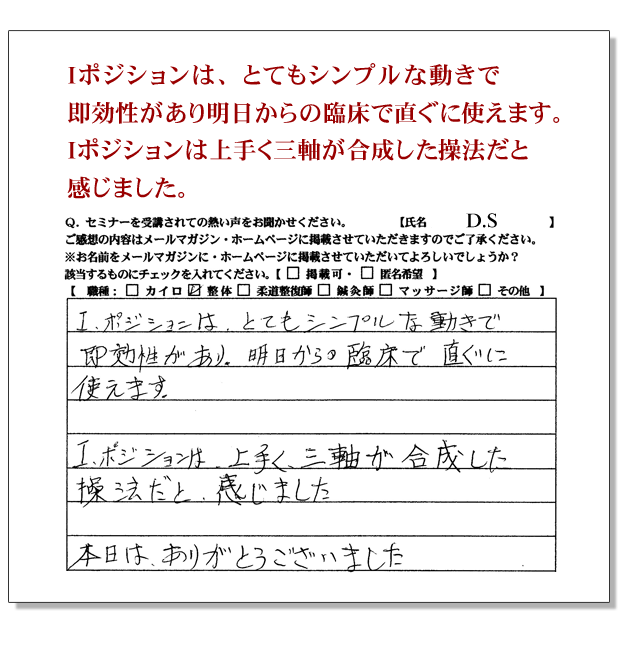 Iポジションは、とてもシンプルな動きで
即効性があり明日からの臨床で直ぐに使えます。
Iポジションは上手く三軸が合成した操法だと
感じました。
Q. セミナーを受講されての熱い声をお聞かせください。 【氏名 D.S 】
ご感想の内容はメールマガジン・ホームページに掲載させていただきますのでご了承ください。
※お名前をメールマガジンに・ホームページに掲載させていただいてよろしいでしょうか？
該当するものにチェックを入れてください。【 □ 掲載可・ □ 匿名希望 】
【 職種： □ カイロ ☑ 整体 □ 柔道整復師 □ 鍼灸師 □ マッサージ師 □ その他 】
I.ポジションは、とてもシンプルな動きで
即効性があり。明日からの臨床で 直ぐに
使えます。
I.ポジションは、上手く、三軸が合成した
操法だと、感じました
本日は、ありがとうございました